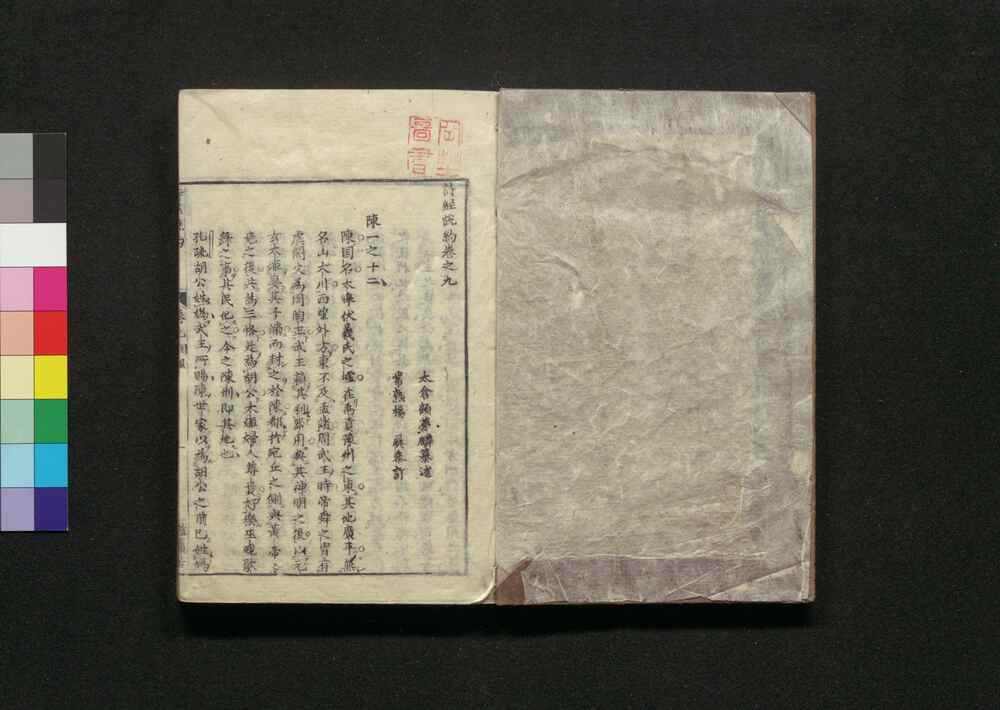 詩經說約卷之九
太倉顧夢麟纂述
常熟楊 彝參訂
陳一之十二
陳国名太皞伏羲氏之墟在禹貢豫州之東其地廣平無
名山大川西望外方東不及孟諸周武王時帝舜之冑有
虞閼父為周陶正武王賴其利器用與其神明之後以元
女大姬妻其子滿而封之於陳都於宛丘之側與黃帝帝
堯之後共為三恪是為胡公大姬婦人尊貴好樂巫覡歌
舞之事其民化之今之陳州即其地也
孔疏胡公姓媯武王所賜陳世家以為胡公之前已姓媯